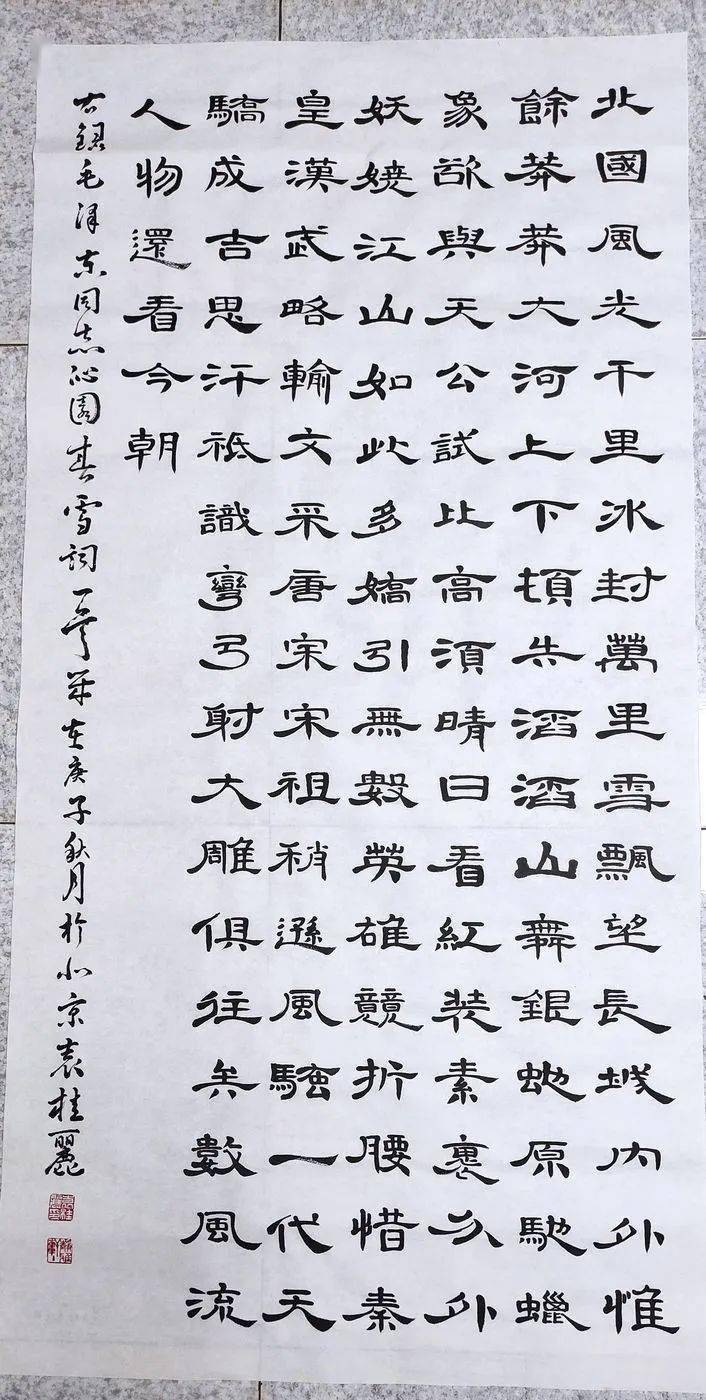 北國風光千里冰封萬里雪飄望長城內外惟
餘莽莽大河上下頓失滔滔山舞銀蛇原馳蠟
象欲與天公試比高須晴日看紅裝素裹分外
妖嬈江山如此多嬌引無數英雄競折腰惜秦
皇漢武略輸文采唐宗宋祖稍遜風騷一代天
驕成吉思汗祇識彎弓射大雕俱往矣數風流
人物還看今朝
右錄毛澤東同志沁園春雪詞一首歲在庚子秋月於北京袁桂麗